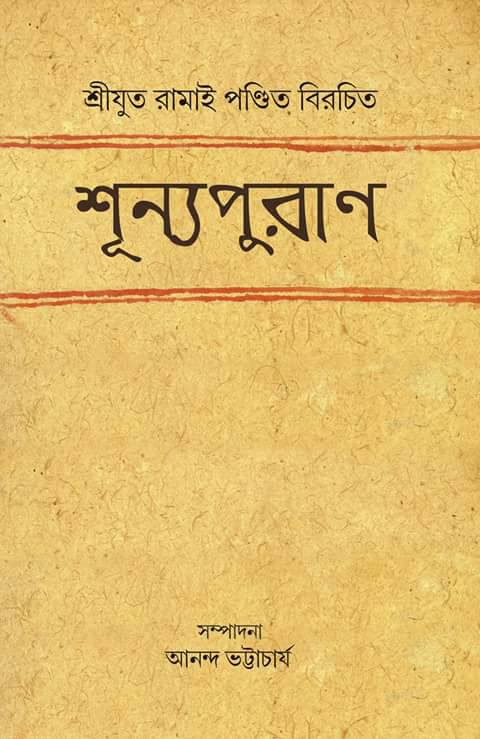 শ্রীযুত রামাই পণ্ডিত বিরচিত
শূন্যপুরাণ
সম্পাদনা
আনন্দ ভট্টাচার্য